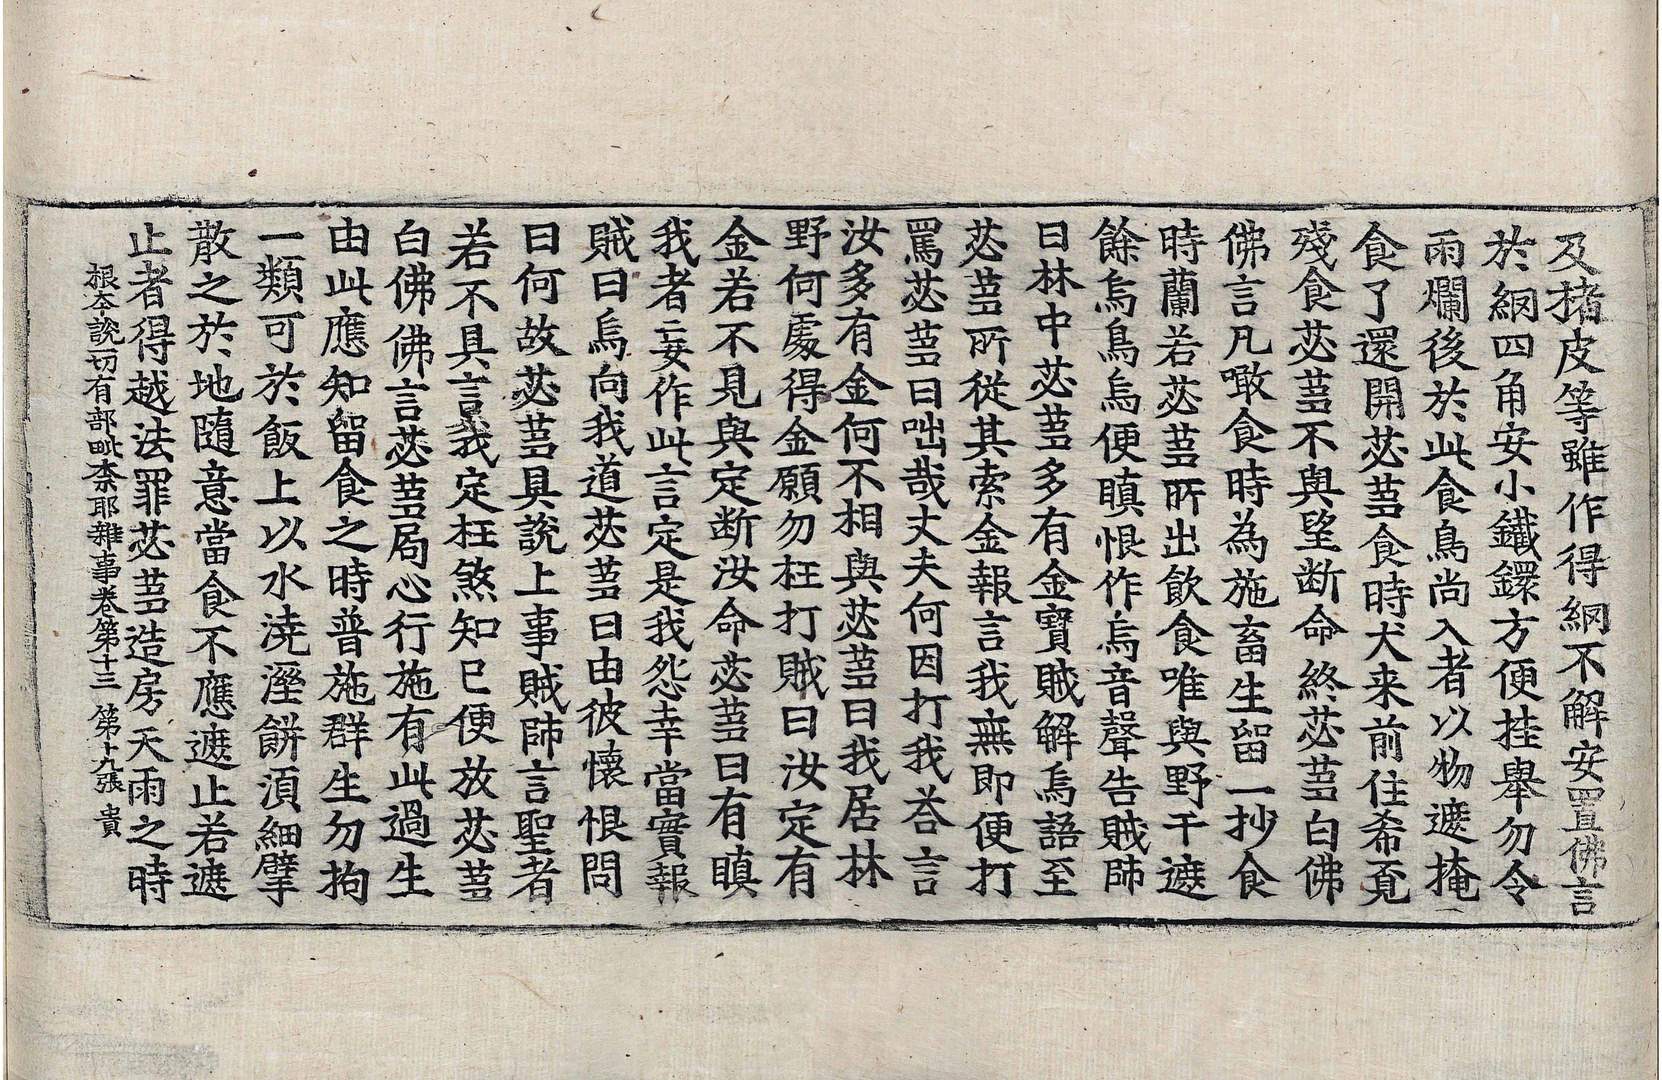 及猪皮等雖作得網不解安置佛言
於網四角安小鐵鐶方便挂舉勿令
雨爛後於此食鳥尚入者以物遮掩
食了還開苾蒭食時犬来前住希覓
殘食苾蒭不與望断命終苾蒭白佛
佛言凡噉食時為施畜生留一抄食
時蘭若苾蒭所出飲食唯與野干遮
餘烏鳥烏便瞋恨作烏音聲告賊帥
曰林中苾蒭多有金寶賊解烏語至
苾蒭所從其索金報言我無即便打
罵苾蒭曰咄哉丈夫何因打我荅言
汝多有金何不相與苾蒭曰我居林
野何處得金願勿枉打賊曰汝定有
金若不見與定断汝命苾蒭曰有瞋
我者妄作此言定是我怨幸當實報
賊曰烏向我道苾蒭曰由彼懷恨問
曰何故苾蒭具說上事賊帥言聖者
若不具言我定枉煞知已便放苾蒭
白佛佛言苾蒭局心行施有此過生
由此應知留食之時普施群生勿拘
一類可於飯上以水澆溼餅湏細擘
散之於地隨意當食不應遮止若遮
止者得越法罪苾蒭造房天雨之時
根本說一切有部毗柰耶雜事卷第十三 第十九張 貴